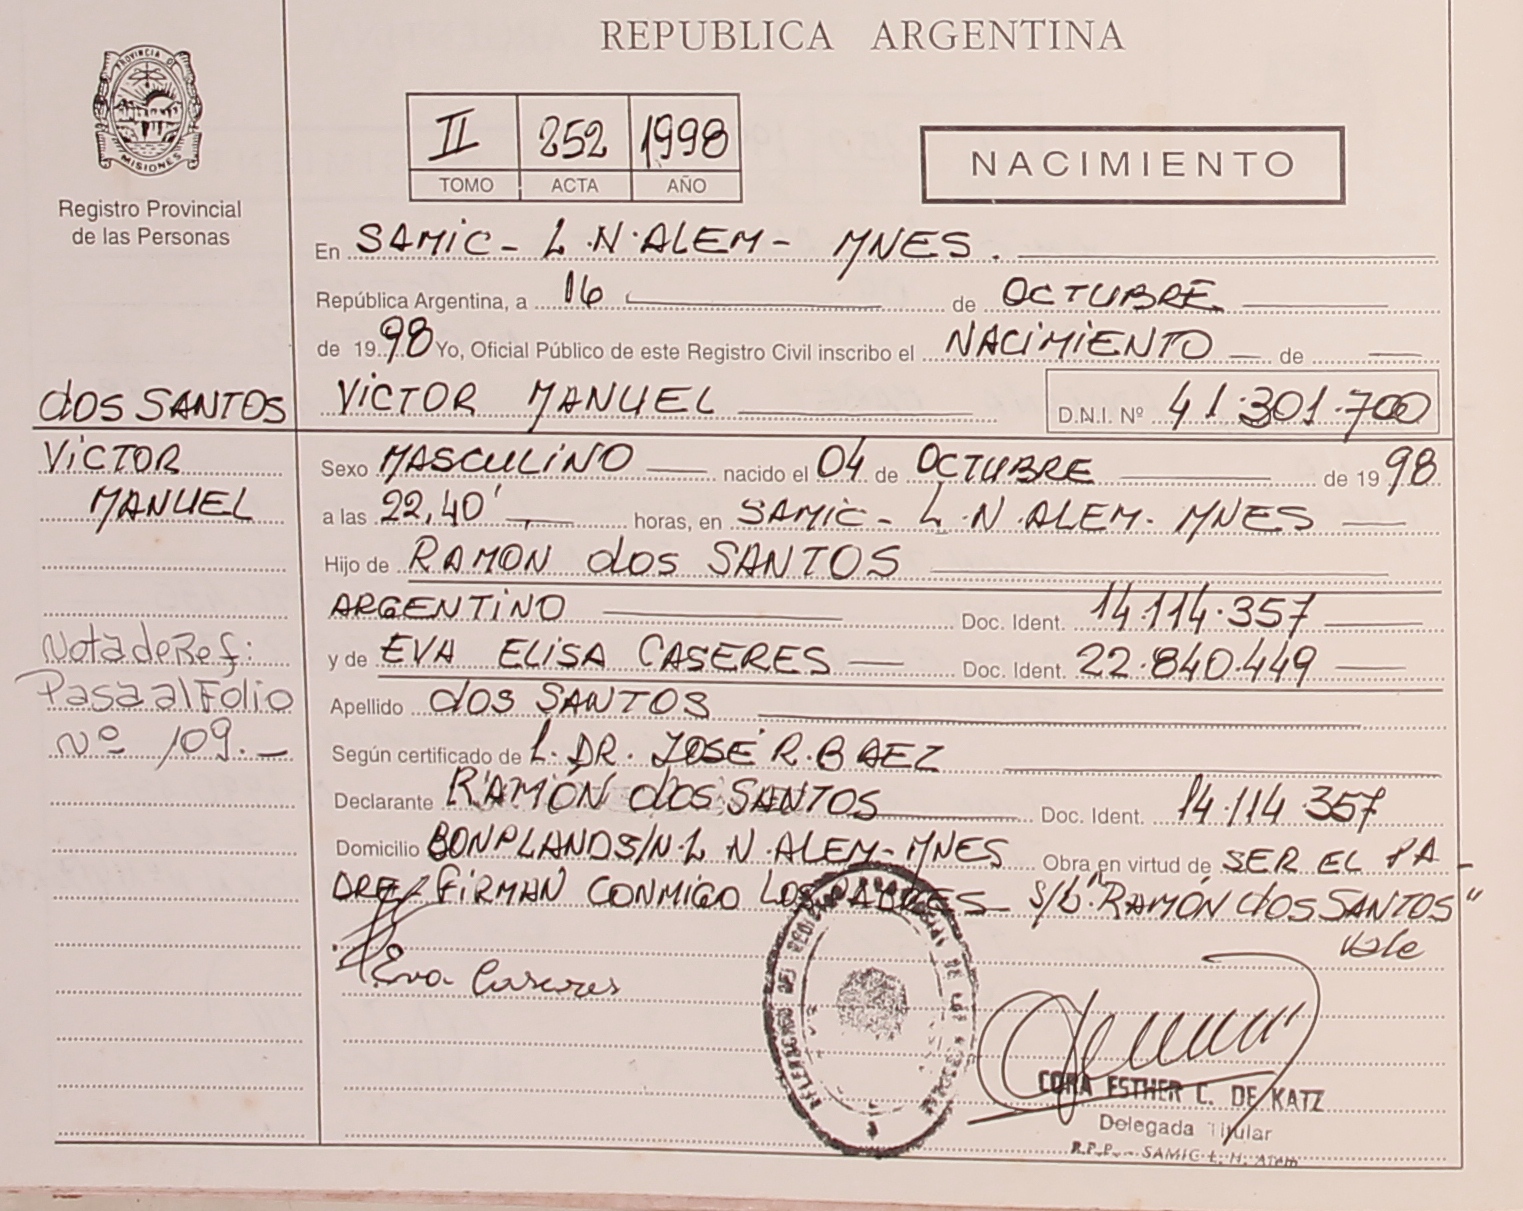 REPUBLICA ARGENTINA
PROVINCIA DE
MISIONES
Registro Provincial
de las Personas
II 252 1998
TOMO ACTA AÑO
NACIMIENTO
En SAMIC - L.N. ALEM - MNES.
República Argentina, a 16 de OCTUBRE
de 1998 Yo, Oficial Público de este Registro Civil inscribo el NACIMIENTO de
dos SANTOS VICTOR MANUEL D.N.I. Nº 41.301.700
VICTOR
MANUEL
Sexo MASCULINO nacido el 04 de OCTUBRE de 1998
a las 22,40' horas, en SAMIC - L.N. ALEM. MNES
Hijo de RAMON dos SANTOS
ARGENTINO Doc. Ident. 14.114.357
y de EVA ELISA CASERES Doc. Ident. 22.840.449
Nota de Ref:
Pasa al Folio
Nº 109.-
Apellido dos SANTOS
Según certificado de L. DR. JOSE R. BAEZ
Declarante RAMÓN dos SANTOS Doc. Ident. 14.114.357
Domicilio BONPLAND S/N. L N. ALEM - MNES Obra en virtud de SER EL PA-
DRE/ FIRMAN CONMIGO LOS PADRES - S/b "RAMÓN dos SANTOS"
Vale
Eva Caseres
CORA ESTHER C. DE KATZ
Delegada Titular
R.P.P. - SAMIC L. N. Alem